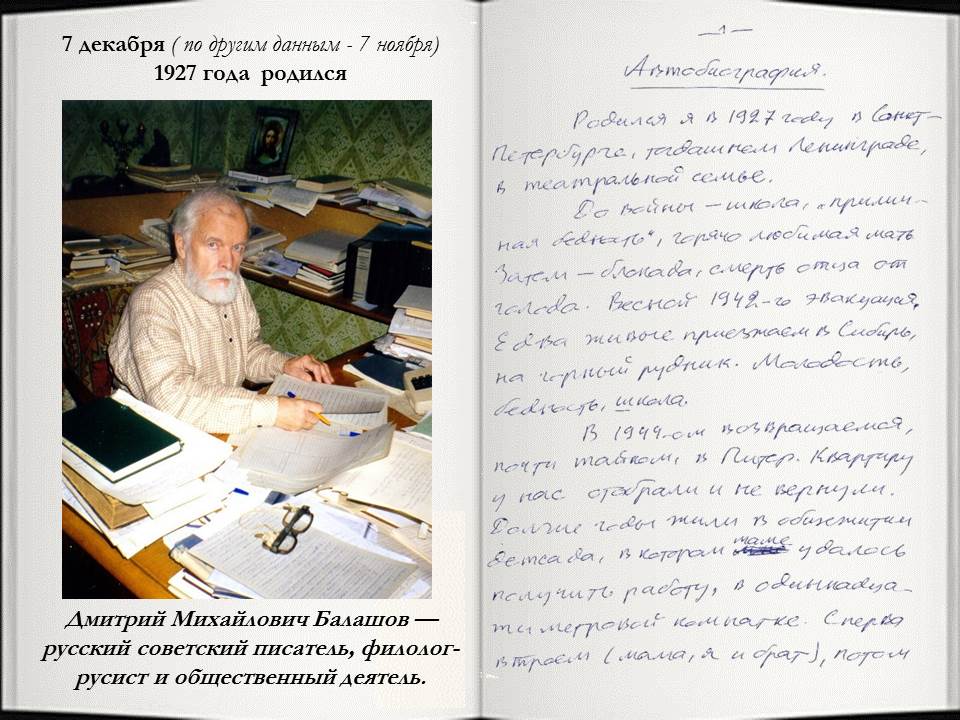 7 декабря ( по другим данным - 7 ноября)
1927 года родился
Дмитрий Михайлович Балашов —
русский советский писатель, филолог-
русист и общественный деятель.
— 1 —
Автобиография.
Родился я в 1927 году в Санкт-
Петербурге, тогдашнем Ленинграде,
в театральной семье.
До войны – школа, „прилич-
ная бедность“, горячо любимая мать
Затем – блокада, смерть отца от
голода. Весной 1942-го эвакуация.
Едва живые приезжаем в Сибирь,
на горный рудник. Молодость,
бедность, школа.
В 1944-ом возвращаемся,
почти тайком, в Питер. Квартиру
у нас отобрали и не вернули.
Долгие годы жили в общежитии
детсада, в котором маме удалось
получить работу, в одиннадца-
тиметровой комнатке. Сперва
втроем (мама, я и брат), потом